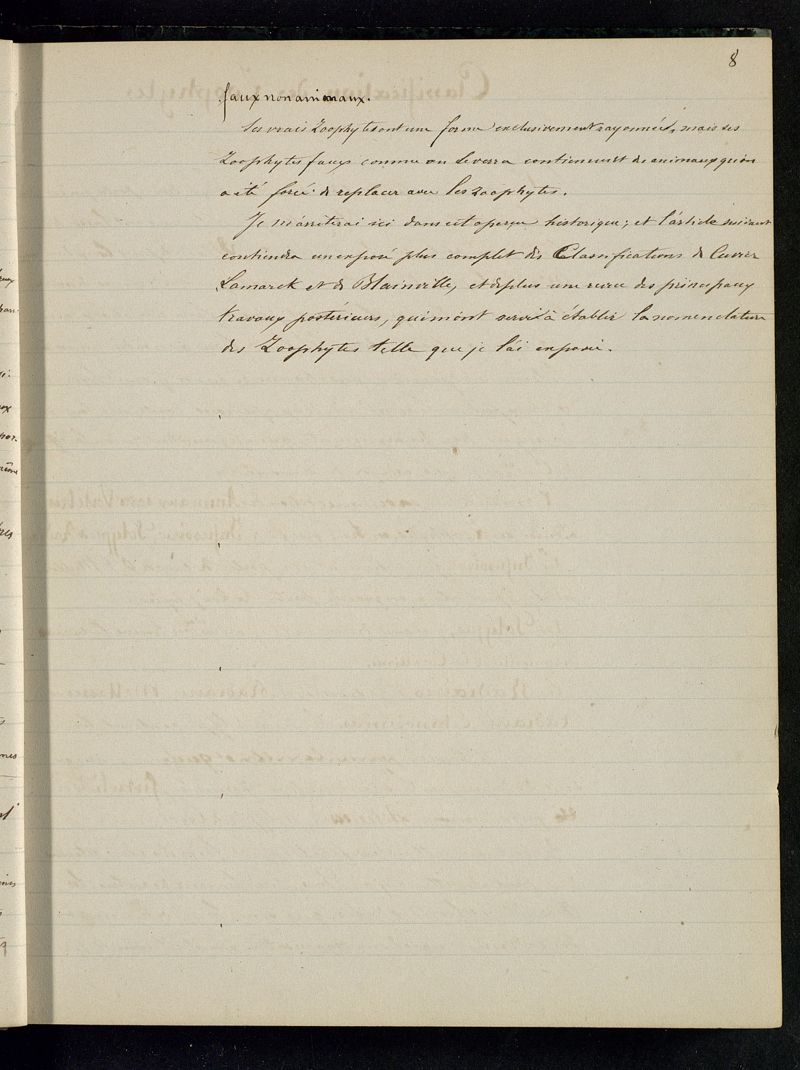 8
faux non animaux.
Les vrais Zoophytes ont une forme exclusivement rayonnée, mais les
Zoophytes faux comme on le verra contiennent des animaux qu'on
a été forcé de replacer avec les Zoophytes.
Je m'arrêterai ici dans cet aperçu historique; et l'article suivant
contiendra un exposé plus complet des Classifications de Cuvier
Lamarck et de Blainville, et de plus une revue des principaux
travaux postérieurs, qui m'ont servi à établir la nomenclature
des Zoophytes telle que je l'ai exposée.